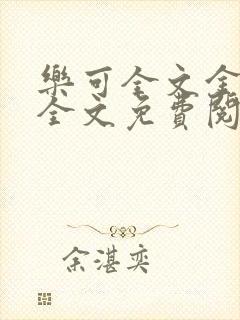 樂可全文全
全文免費閱
余湛奕